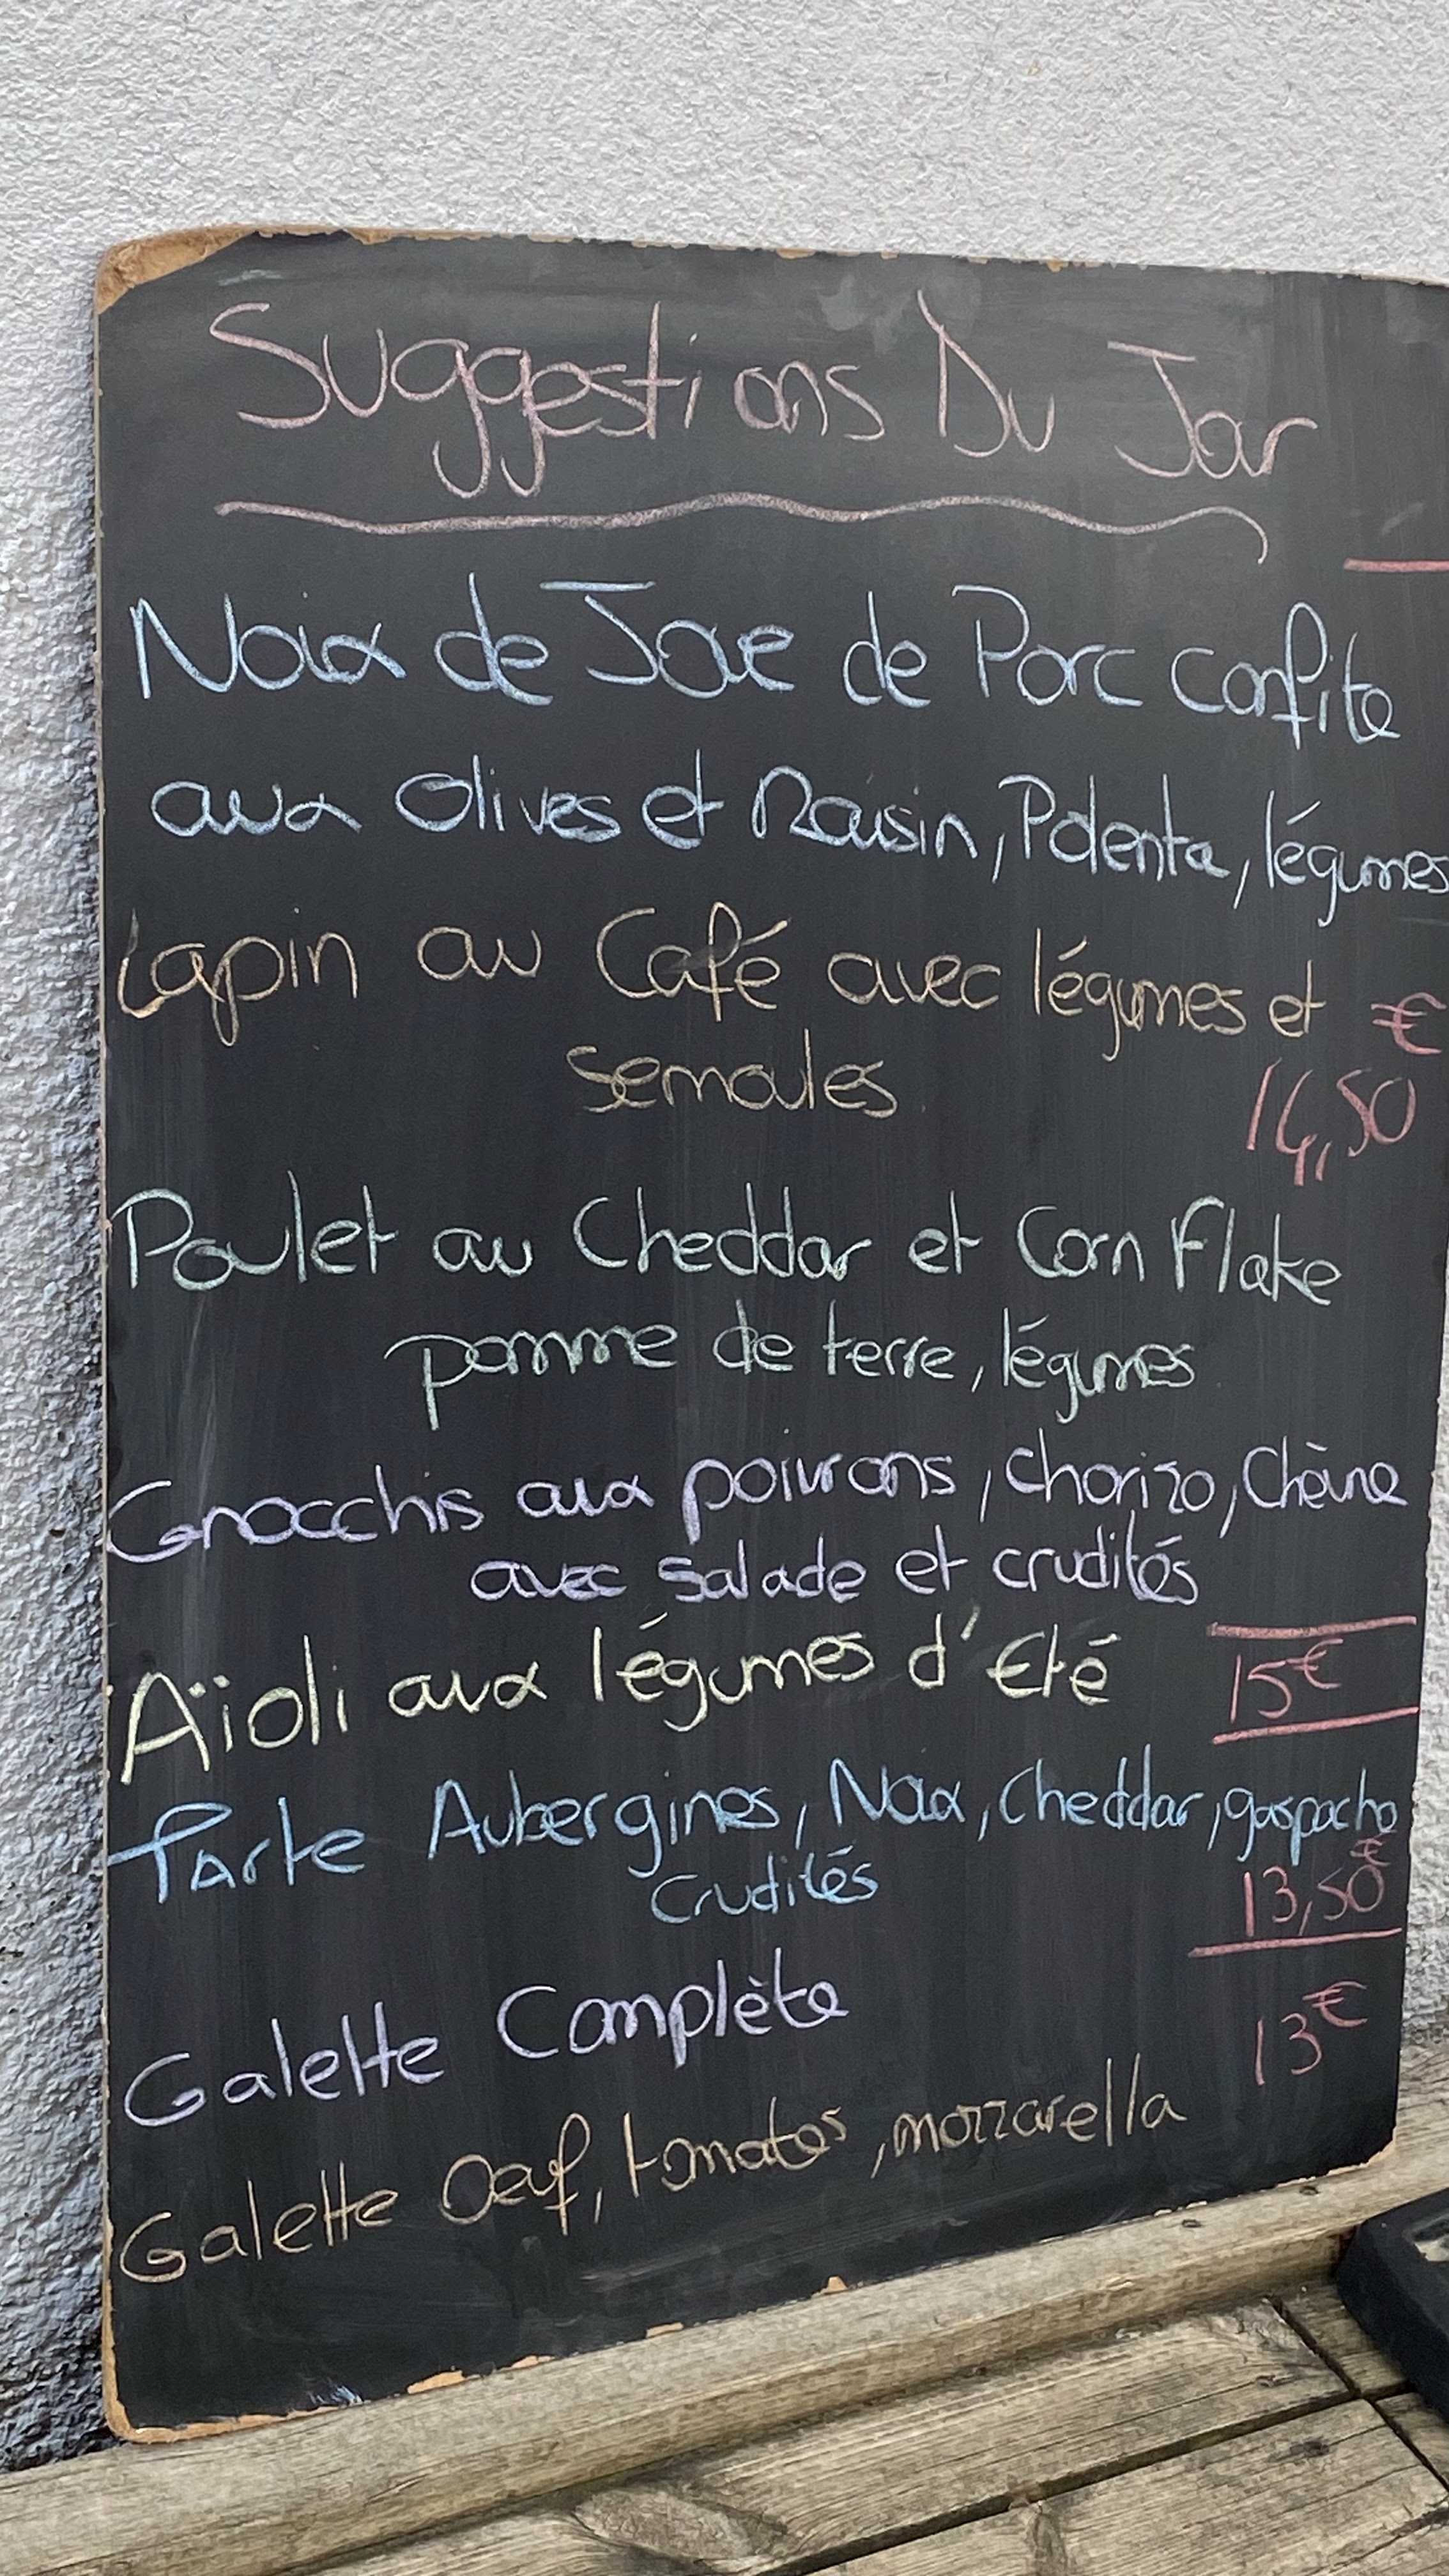 Suggestions Du Jour
Noix de Joue de Porc confite
aux Olives et Raisin, Polenta, légumes
Lapin au Café avec légumes et €
semoules 14,50
Poulet au Cheddar et Corn Flake
pomme de terre, légumes
Gnocchis aux poivrons, chorizo, Chèvre
avec salade et crudités
Aïoli aux légumes d'Eté 15€
Tarte Aubergines, Noix, Cheddar, gaspacho
Crudités 13,50€
Galette Complète 13€
Galette Oeuf, tomates, mozzarella